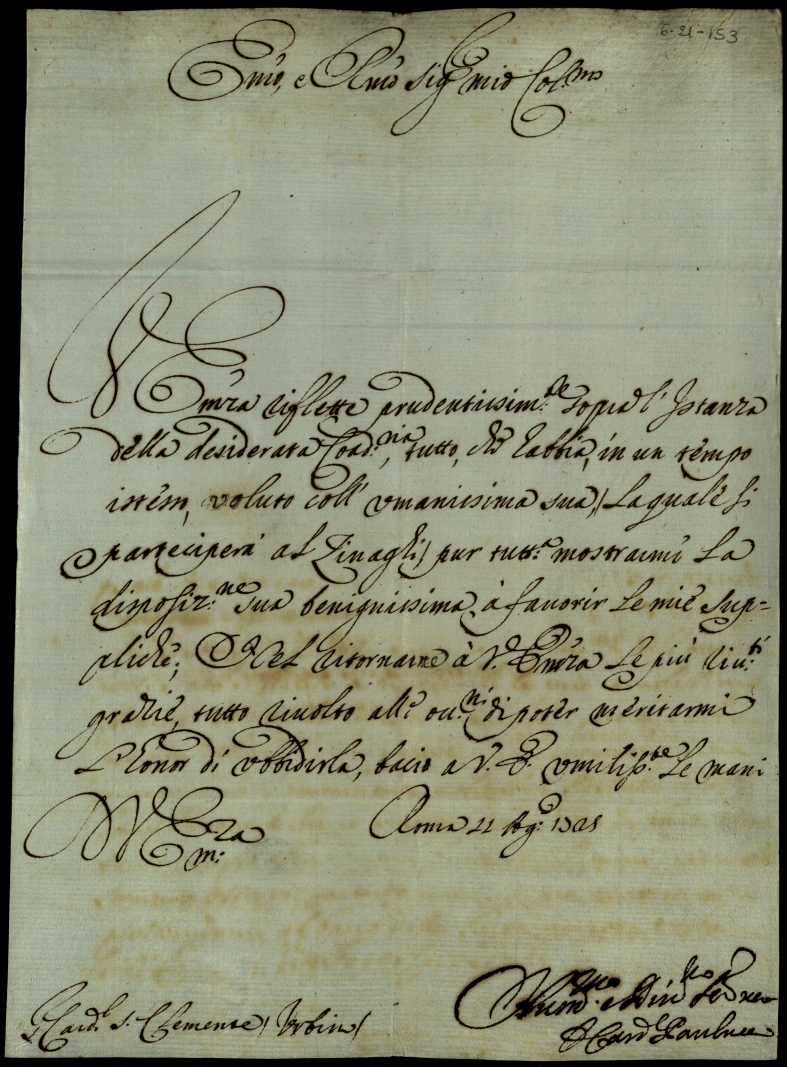 6-21-153
Emo, e Rmo Sig.r mio Col.mo
V Emza riflette prudentissim.te sopra l'Istanza
della desiderata Coad.ria, tutto, chè habbia, in un tempo
istesso, voluto coll' umanissima sua, (la quale si
parteciperà al Zinaghi) pur tutt.a mostrarmi la
disposiz.ne sua benignissima, à favorir le mie sup=
pliche; Nel ritornarne à V. Emza le più viv.
grazie, tutto rivolto alle di poter meritarmi
L'honor di ubbidirla, bacio a V. E. umiliss.te le mani
V Emza
Roma 11 Ag.o
S. Card.l S. Clemente (Urbino)
Ser.re
Il Card.l Paulucci